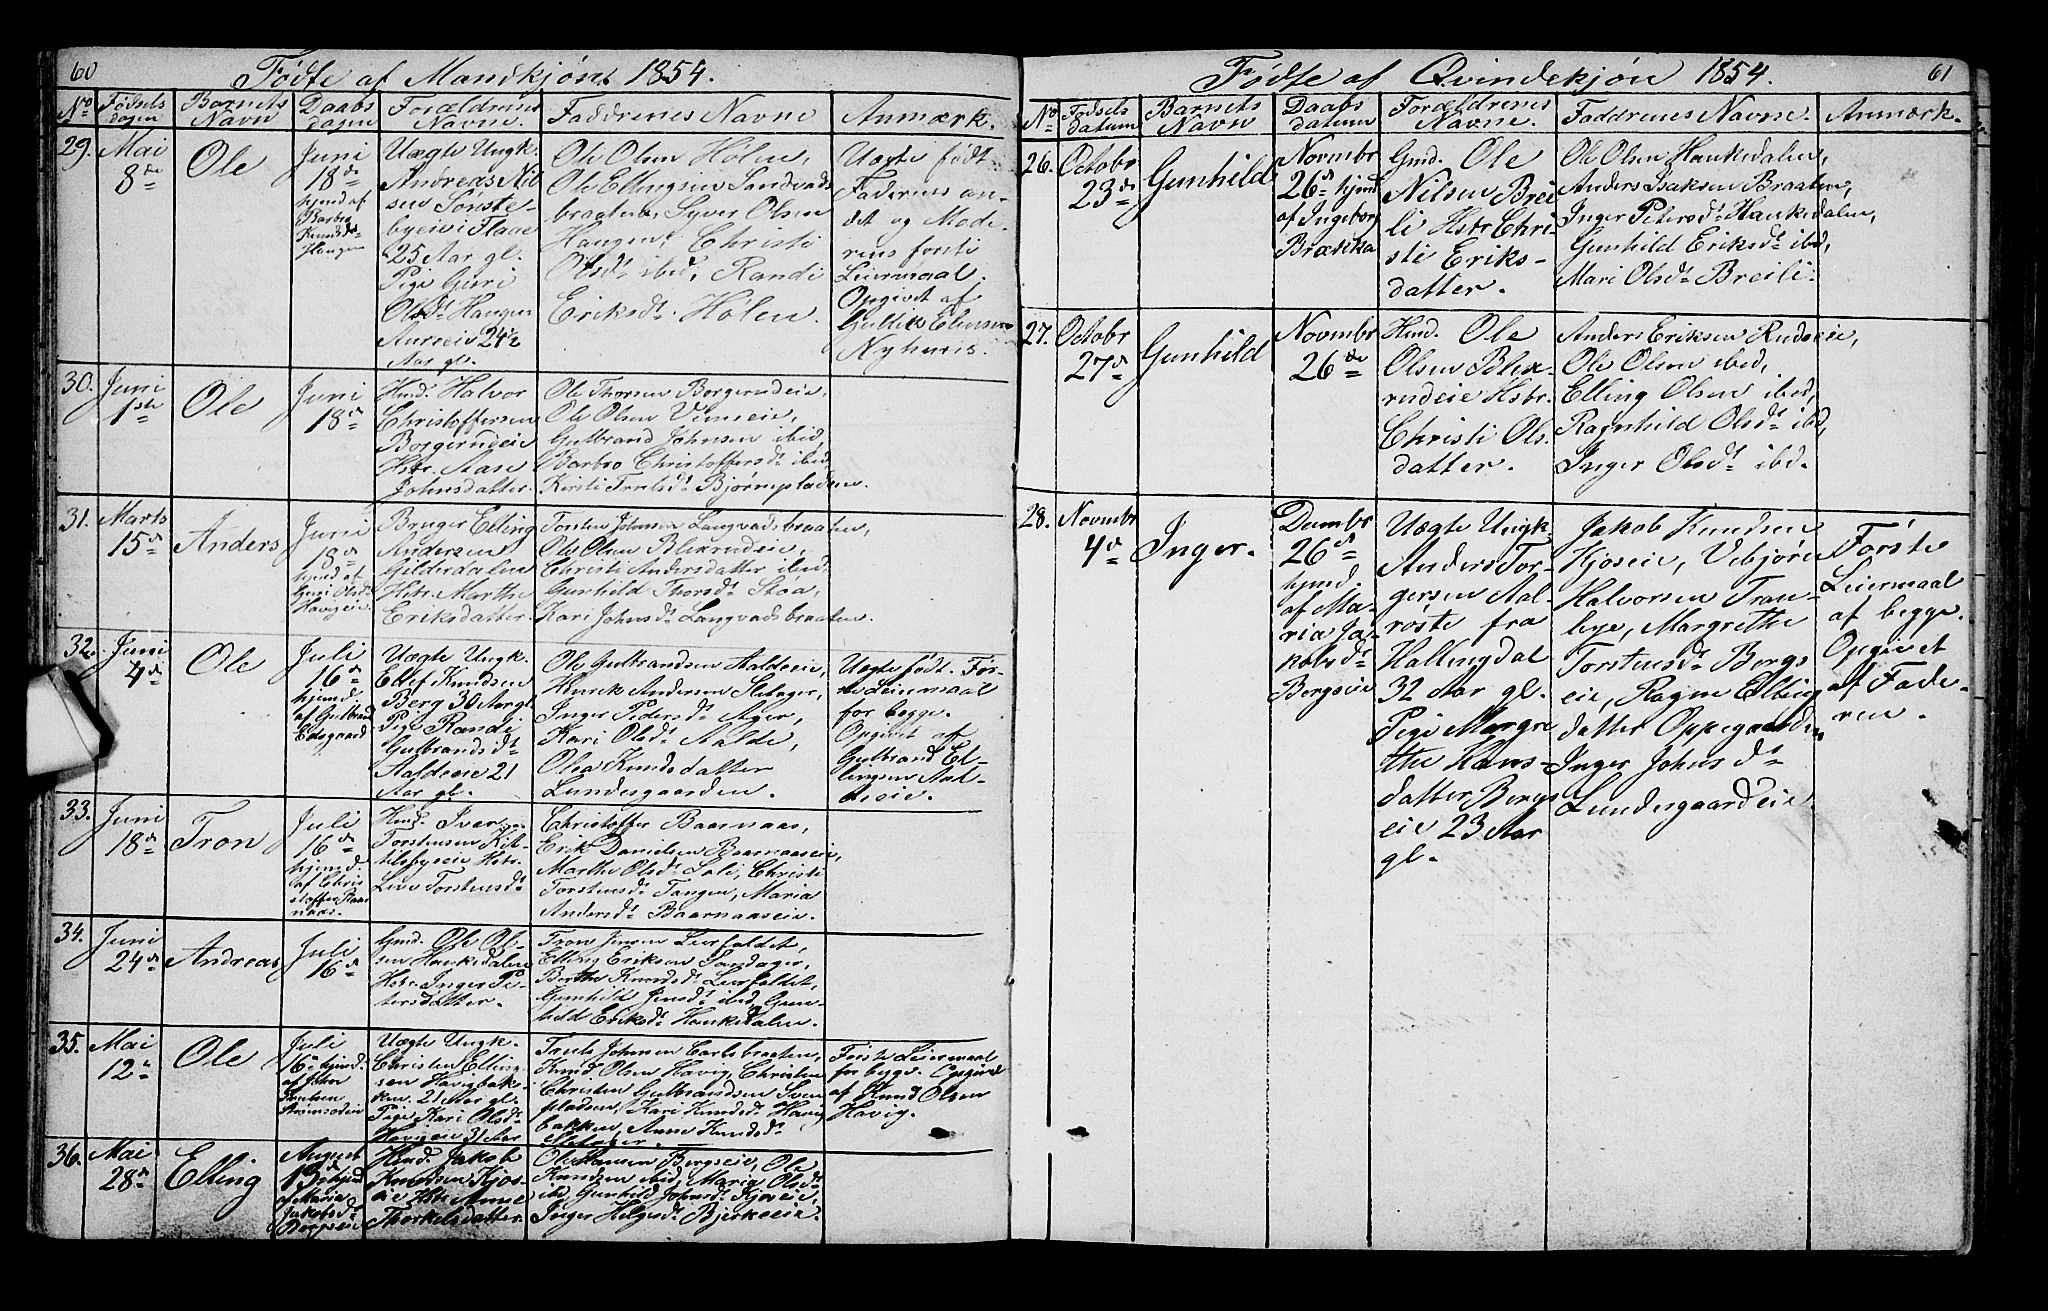 60
Födte af Mandkjön. 1854.
No Födsels dagen Barnets Navn Daabs dagen Forældrenes Navne. Faddrenes Navne Anmærk.
29. Mai 8de
Ole
Juni 18de
hjemd af
Barbro
Knudsdr
Haugen
Uægte Ungk.
Andreas Nil
sen Sönste-
byeie i Flaae
25 Aar gl.
Pige Guri
Olsdr Haugen
24½
Aar gl.
Ole Olsen Hölen,
Ole Ellingsen Sandvads
braaten, Syver Olsen
Haugen, Christi
Olsdr ibid, Randi
Eriksdr Hölen.
Uægte födt.
Faderens an-
det og Mode-
rens förste
Leiermaal.
Opgivet af
Gullik Ellensen
Nyhuus.
30. Juni 1ste
Ole
Juni 18de
Husd. Halvor
Christoffersen
Borgerudeie
Hstr. Aase
Johnsdatter.
Ole Thorsen Borgerudeie,
Ole Olsen Vemeeie,
Gulbrand Johnsen ibid,
Barbro Christoffersdr ibid,
Kirsti Truelsdr Björnepladsen.
31. Marts 15de
Anders
Juni 18de
hjemd af
Guri Olsdr
Havigeie
Bruger Elling
Andersen
Gilderdalen
Hstr. Marthe
Eriksdatter.
Torsten Johnsen Langvadsbraaten,
Ole Olsen Blexrudeie,
Christi Andersdatter ibid
Gunhild Thorsdr Stöa,
Kari Johnsdr Langvadsbraaten.
32. Juni 4de
Ole
Juli 16de
hjemd.
af Gulbrand
Edsgaard
Uægte Ungk.
Ellef Knudsen
Berg 30 Aar gl.
Pige Randi
Gulbrandsdr
Aaldeeie 21
Aar gl.
Ole Gulbrandsen Aaldeeie,
Henrik Andersen Sletager,
Inger Pedersdr Ager,
Kari Olsdr Aalde,
Olea Knudsdatter
Lundesgaarden.
Uægte födt. För-
ste Leiermaal
for begge.
Opgivet af
Gulbrand El-
lingsen Aal-
deeie.
33. Juni 18de
Tron
Juli 16de
hjemd.
af Chris
toffer Baar
naas.
Husd. Iver
Torstensen Kit-
tilsbyeie Hstr.
Live Torstensdr
Christoffer Baarnaas,
Erik Danielsen Baarnaaseie,
Marthe Olsdr Sole, Christi
Torstensdr Tangen, Maria
Andersdr Baarnaaseie.
34. Juni 24de
Andreas
Juli 16de
Gmd. Ole Ol-
sen Haukedalen
Hstr. Inger Pe-
tersdatter.
Tron Jensen Leerfaldet,
Elling Eriksen Sandager,
Berthe Knudsdr Leerfaldet,
Gunhild Jensdr ibid, Gun-
hild Eriksdr Haukedalen.
35. Mai 12te
Ole
Juli
16de hjemd.
af John
Uægte Ungk.
Christen Elling-
sen Havigbak-
ken 21 Aar gl.
Pige Kari Olsdr
Havigeie 31 Aar
Truls Johnsen Carlsbraaten,
Knud Olsen Havig, Christen
Christen Gulbrandsen Sven
pladsen, Kari Knudsdr Havig
bakken, Anne Knudsdr
Sletager.
Förste Leiermaal
for begge. Opgivet
af Knud Olsen
Havig.
36. Mai 28de
Elling
August
13de hjemd
af Maria
Jakobsdr
Bergseie
Husd. Jakob
Knudsen Kjos-
eie Hstr Anne
Thorkelsdatter.
Ole Hansen Bergseie, Ole
Knudsen ibid, Maria Olsdr
ibid, Gunhild Johnsdr Kjoseie,
Inger Helgesdr Bjerkeeie.
61
Födte af Qvindekjön 1854.
No Födsels datum Barnets Navn Daabs datum Forældrenes Navne. Faddrenes Navne. Anmærk.
26. Octobr 23de
Gunhild
Novmbr
26de hjemd
af Ingeborg
Brækka
Gmd. Ole
Nilsen Brei-
li Hstr Chri-
sti Eriks-
datter.
Ole Olsen Haukedalen,
Anders Isaksen Braaten,
Inger Petersdr Haukedalen,
Gunhild Eriksdr ibid,
Mari Olsdr Breili.
27. Octobr 27de
Gunhild
Novmbr
26de
Husd. Ole
Olsen Blex-
rudeie Hstr.
Christi Ols-
datter.
Anders Eriksen Rudseie,
Ole Olsen ibid,
Elling Olsen ibid,
Ragnhild Olsdr ibid,
Inger Olsdr ibd.
28. Novmbr 4de
Inger.
Decmbr
26de
hjemd.
af Ma-
ria Ja-
kobsdr
Bergseie
Uægte Ungk.
Anders Tor-
gersen Aal-
röste fra
Hallingdal
32 Aar gl.
Pige Margre
the Hans-
datter Bergs
eie 23 Aar
gl.
Jakob Knudsen
Kjoseie, Vebjörn
Halvorsen Tran-
bye, Margrethe
Torstensdr Bergs
eie, Ragne Elling
datter Oppegaarden
Inger Johnsdr
Lundesgaardeie
Förste
Leiermaal
af begge.
Opgivet
af Fade-
ren.